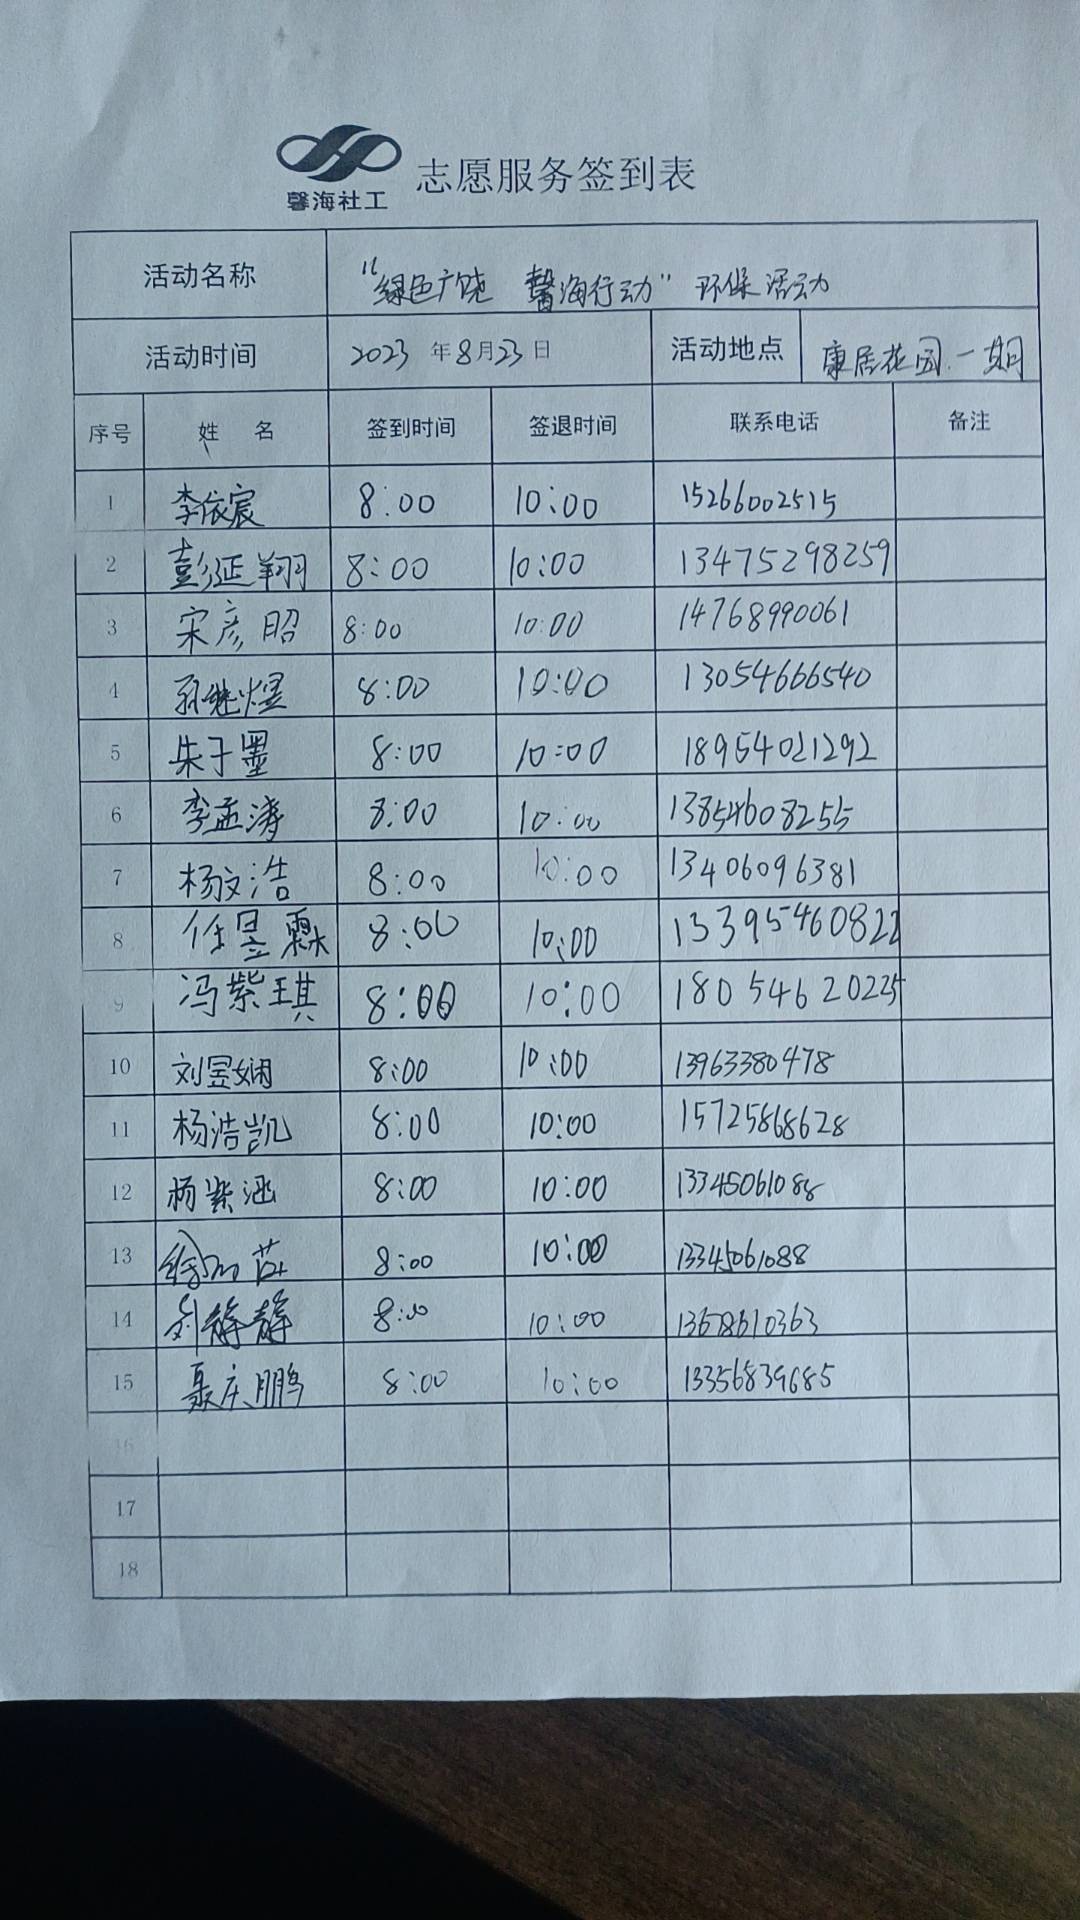 馨海社工 志愿服务签到表
活动名称 “绿色广饶 馨海行动” 环保活动
活动时间 2023年8月23日 活动地点 康居花园一期
序号 姓名 签到时间 签退时间 联系电话 备注
1 李依宸 8:00 10:00 15266002515
2 彭延翔 8:00 10:00 13475298259
3 宋彦昭 8:00 10:00 14768990061
4 孙继煜 8:00 10:00 13054666540
5 朱子墨 8:00 10:00 18954021292
6 李孟涛 8:00 10:00 13854608255
7 杨文浩 8:00 10:00 13406096381
8 任昱霖 8:00 10:00 13395460822
9 冯紫琪 8:00 10:00 18054620225
10 刘昱娴 8:00 10:00 13963380478
11 杨浩凯 8:00 10:00 15725868628
12 杨紫涵 8:00 10:00 13345061088
13 8:00 10:00 13345061088
14 刘静静 8:00 10:00
15 聂庆鹏 8:00 10:00 13356839685
16
17
18